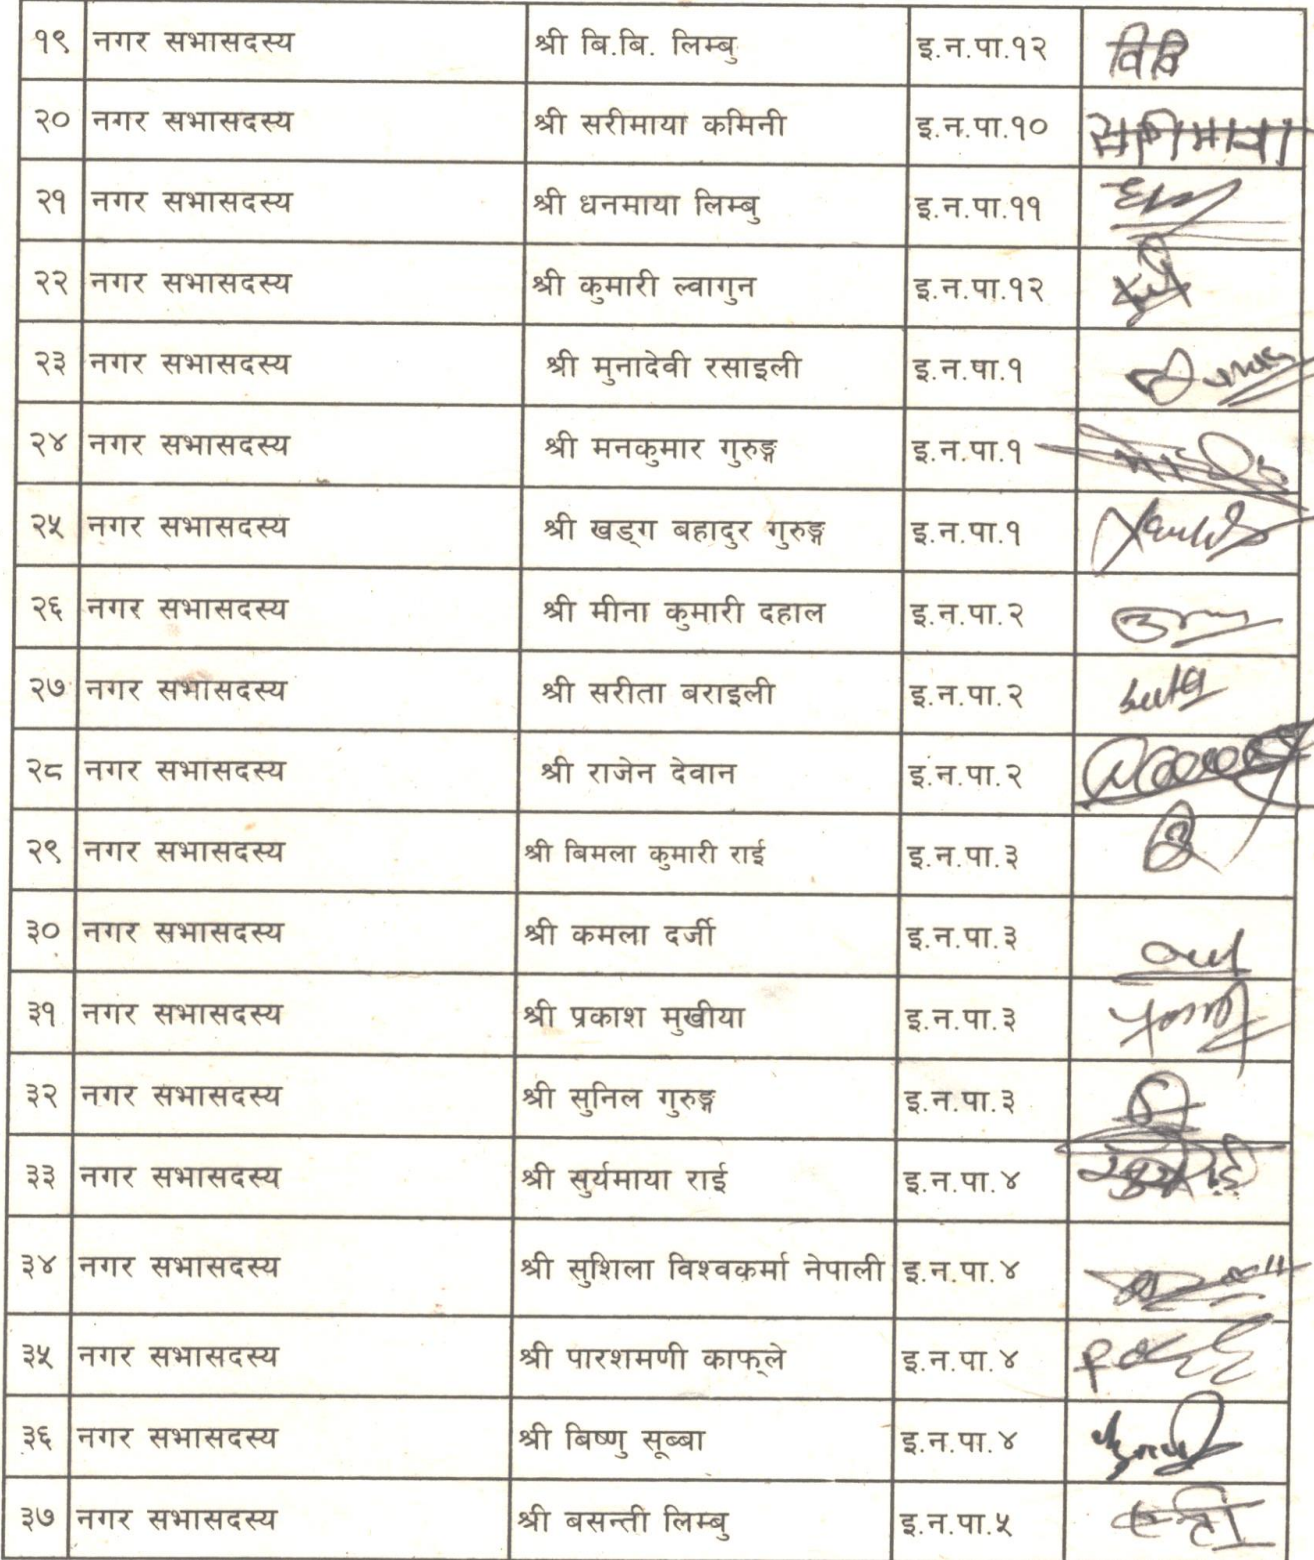 १९ नगर सभासदस्य श्री बि.बि. लिम्बु इ.न.पा.१२ विवि
२० नगर सभासदस्य श्री सरीमाया कमिनी इ.न.पा.१०
२१ नगर सभासदस्य श्री धनमाया लिम्बु इ.न.पा.११
२२ नगर सभासदस्य श्री कुमारी ल्वागुन इ.न.पा.१२
२३ नगर सभासदस्य श्री मुनादेवी रसाइली इ.न.पा.१
२४ नगर सभासदस्य श्री मनकुमार गुरुङ्ग इ.न.पा.१
२५ नगर सभासदस्य श्री खड्ग बहादुर गुरुङ्ग इ.न.पा.१
२६ नगर सभासदस्य श्री मीना कुमारी दहाल इ.न.पा.२
२७ नगर सभासदस्य श्री सरीता बराइली इ.न.पा.२
२८ नगर सभासदस्य श्री राजेन देवान इ.न.पा.२
२९ नगर सभासदस्य श्री बिमला कुमारी राई इ.न.पा.३
३० नगर सभासदस्य श्री कमला दर्जी इ.न.पा.३
३१ नगर सभासदस्य श्री प्रकाश मुखीया इ.न.पा.३
३२ नगर सभासदस्य श्री सुनिल गुरुङ्ग इ.न.पा.३
३३ नगर सभासदस्य श्री सुर्यमाया राई इ.न.पा.४
३४ नगर सभासदस्य श्री सुशिला विश्वकर्मा नेपाली इ.न.पा.४
३५ नगर सभासदस्य श्री पारशमणी काफ्ले इ.न.पा.४
३६ नगर सभासदस्य श्री बिष्णु सूब्बा इ.न.पा.४
३७ नगर सभासदस्य श्री बसन्ती लिम्बु इ.न.पा.५